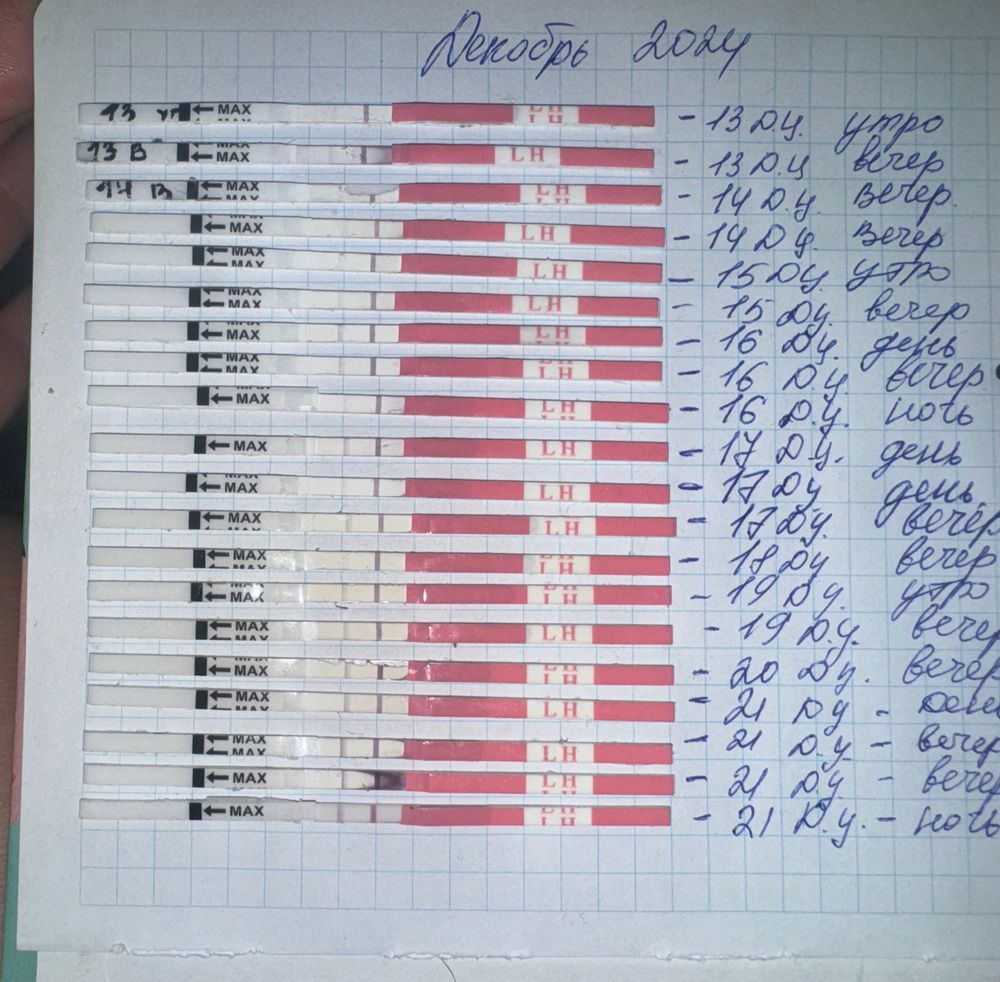 Декабрь 2024
13 ут MAX LH - 13 Д.ц. утро
13 В MAX LH - 13 Д.ц вечер
14 В MAX LH - 14 Д.ц. вечер.
MAX LH - 14 Дц. вечер
MAX LH - 15 Дц. утро
MAX LH - 15 Дц. вечер
MAX LH - 16 Дц. день
MAX LH - 16 Д.ц. вечер
MAX LH - 16 Д.ц. ночь
MAX LH - 17 Д.ц. день
MAX LH - 17 Дц день
MAX LH - 17 Дц. вечер
MAX LH - 18 Дц вечер
MAX LH - 19 Дц. утро
MAX LH - 19 Д.ц. вечер
MAX LH - 20 Дц. вечер
MAX LH - 21 Дц -
MAX LH - 21 Д.ц - вечер
MAX LH - 21 Дц - вечер
MAX LH - 21 Д.ц. - ночь